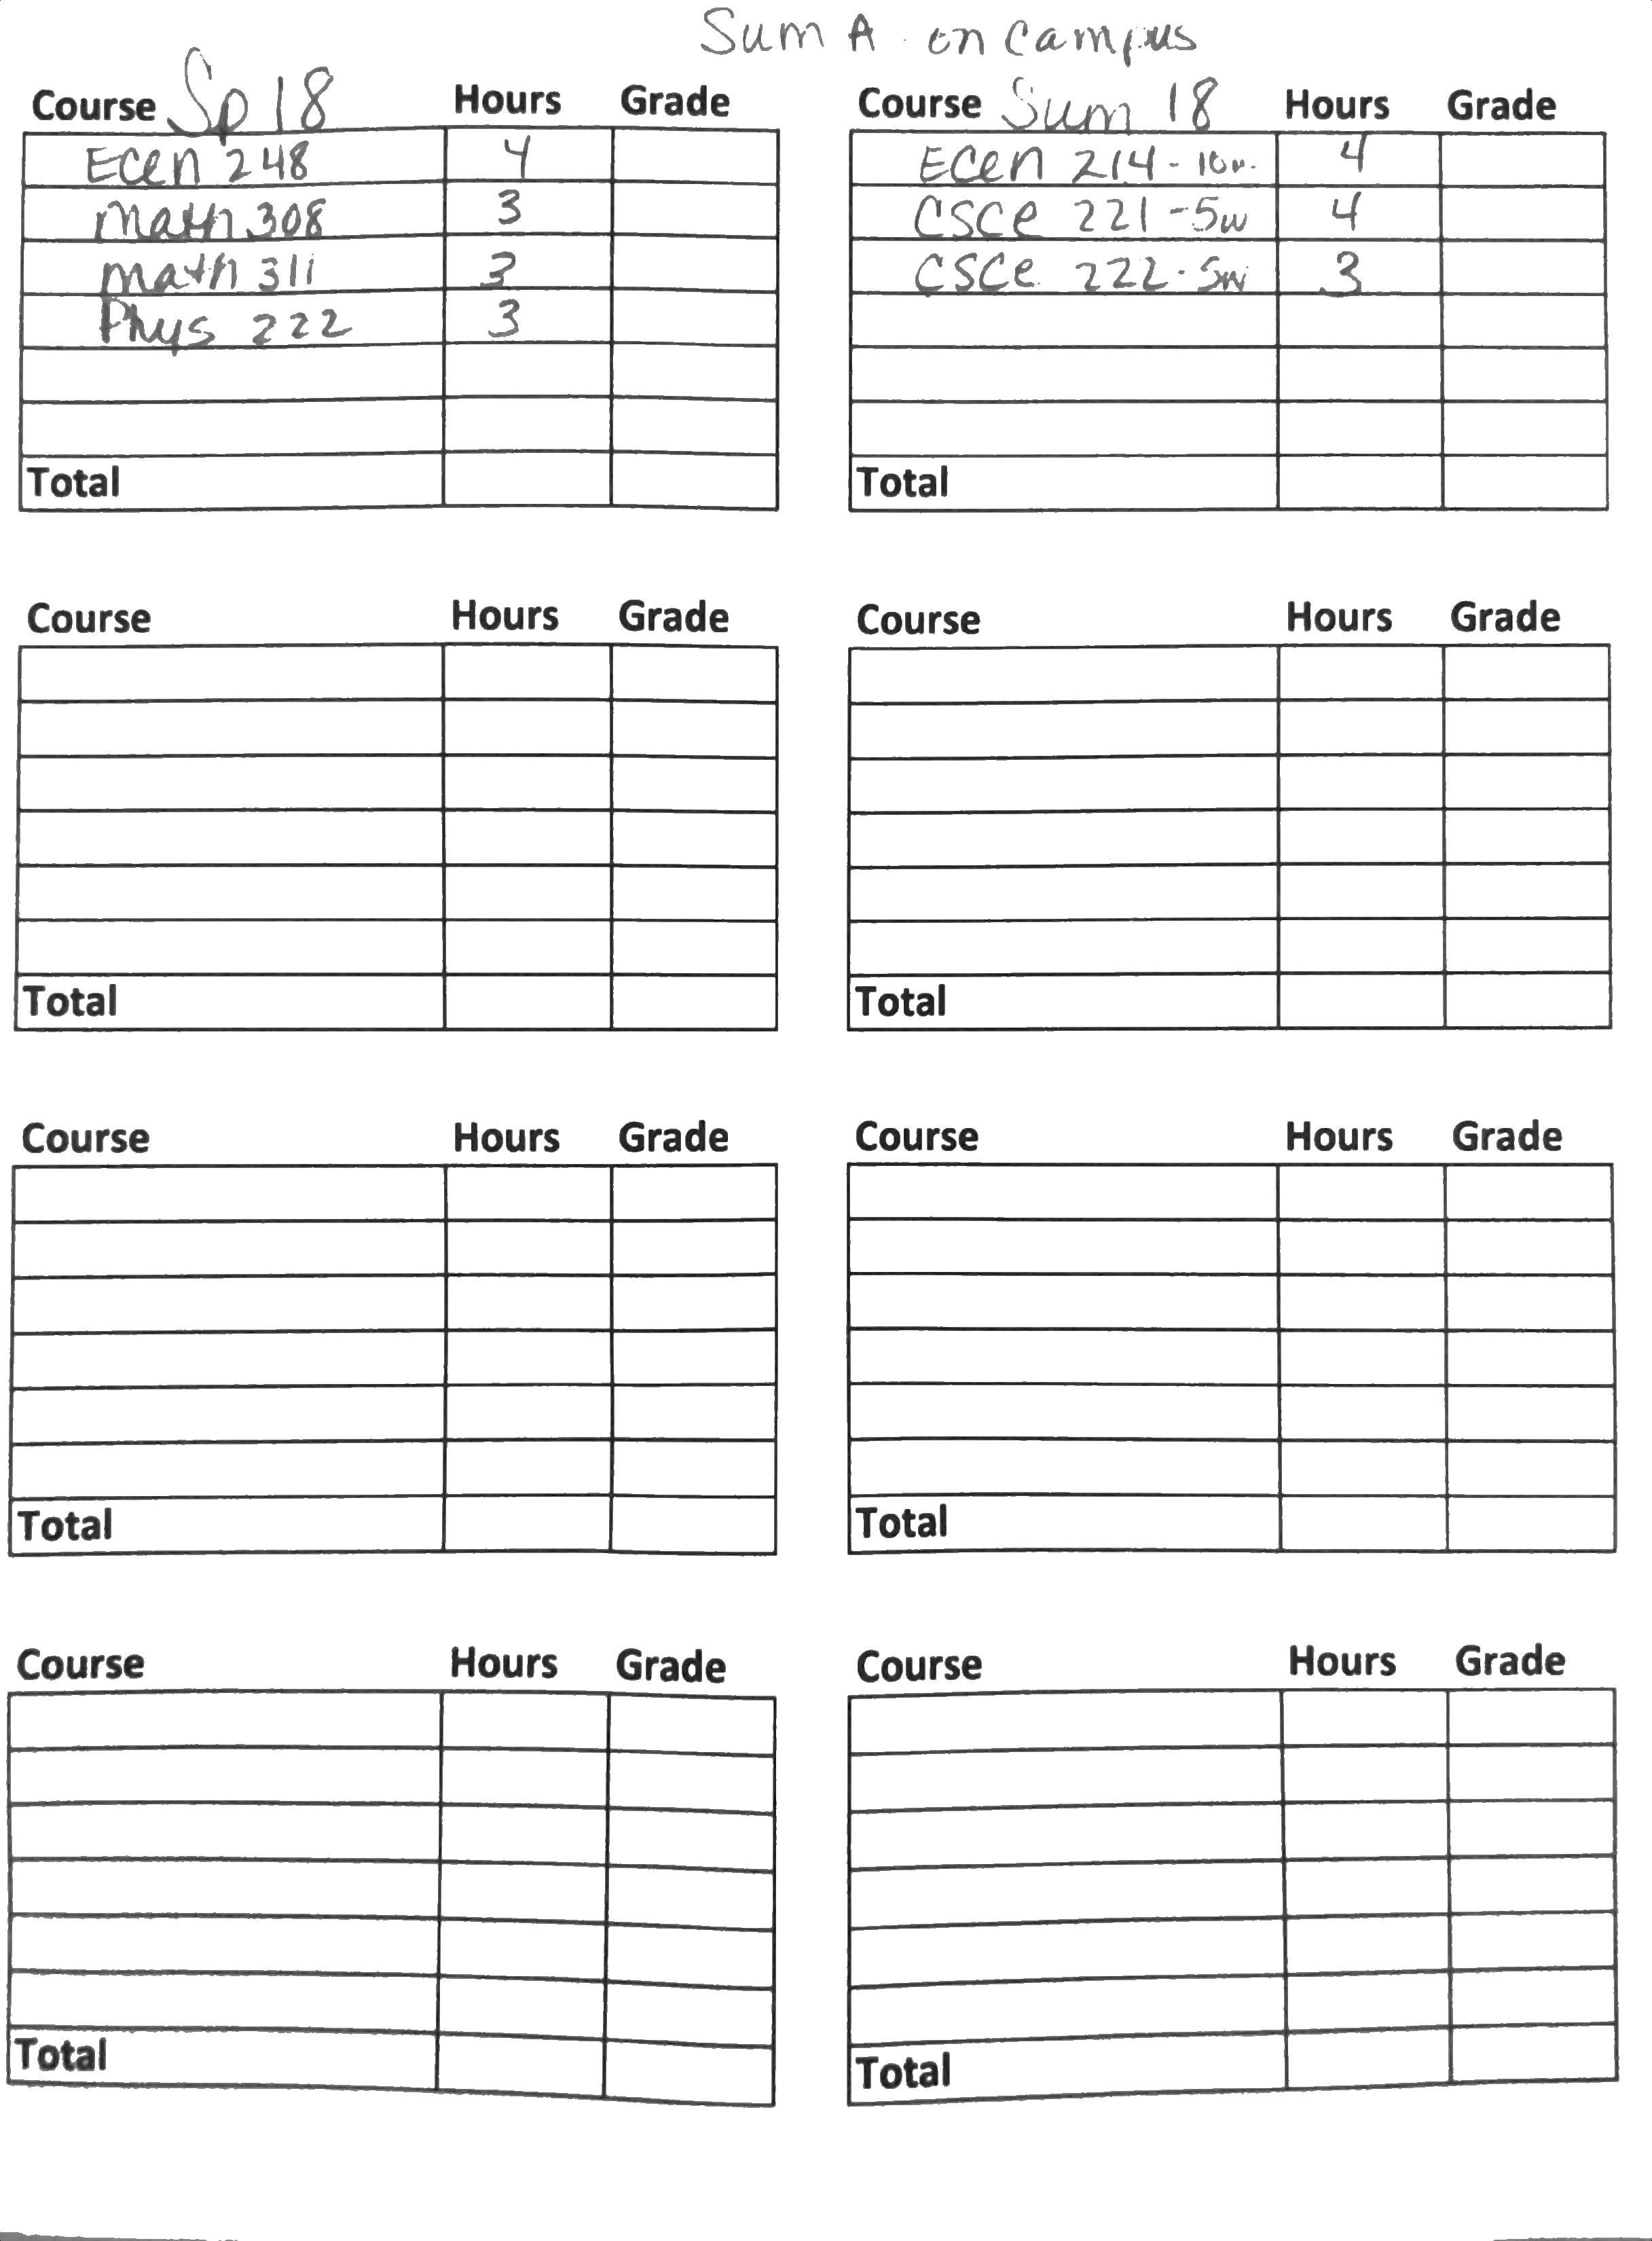 Sum A on campus
Course Sp 18 Hours Grade
Ecen 248 4
Math 308 3
Math 311 3
Phys 222 3
Total
Course Sum 18 Hours Grade
Ecen 214 - 10w 4
CSCE 221 - 5w 4
CSCE 222 - 5w 3
Total
Course Hours Grade
Total
Course Hours Grade
Total
Course Hours Grade
Total
Course Hours Grade
Total
Course Hours Grade
Total
Course Hours Grade
Total